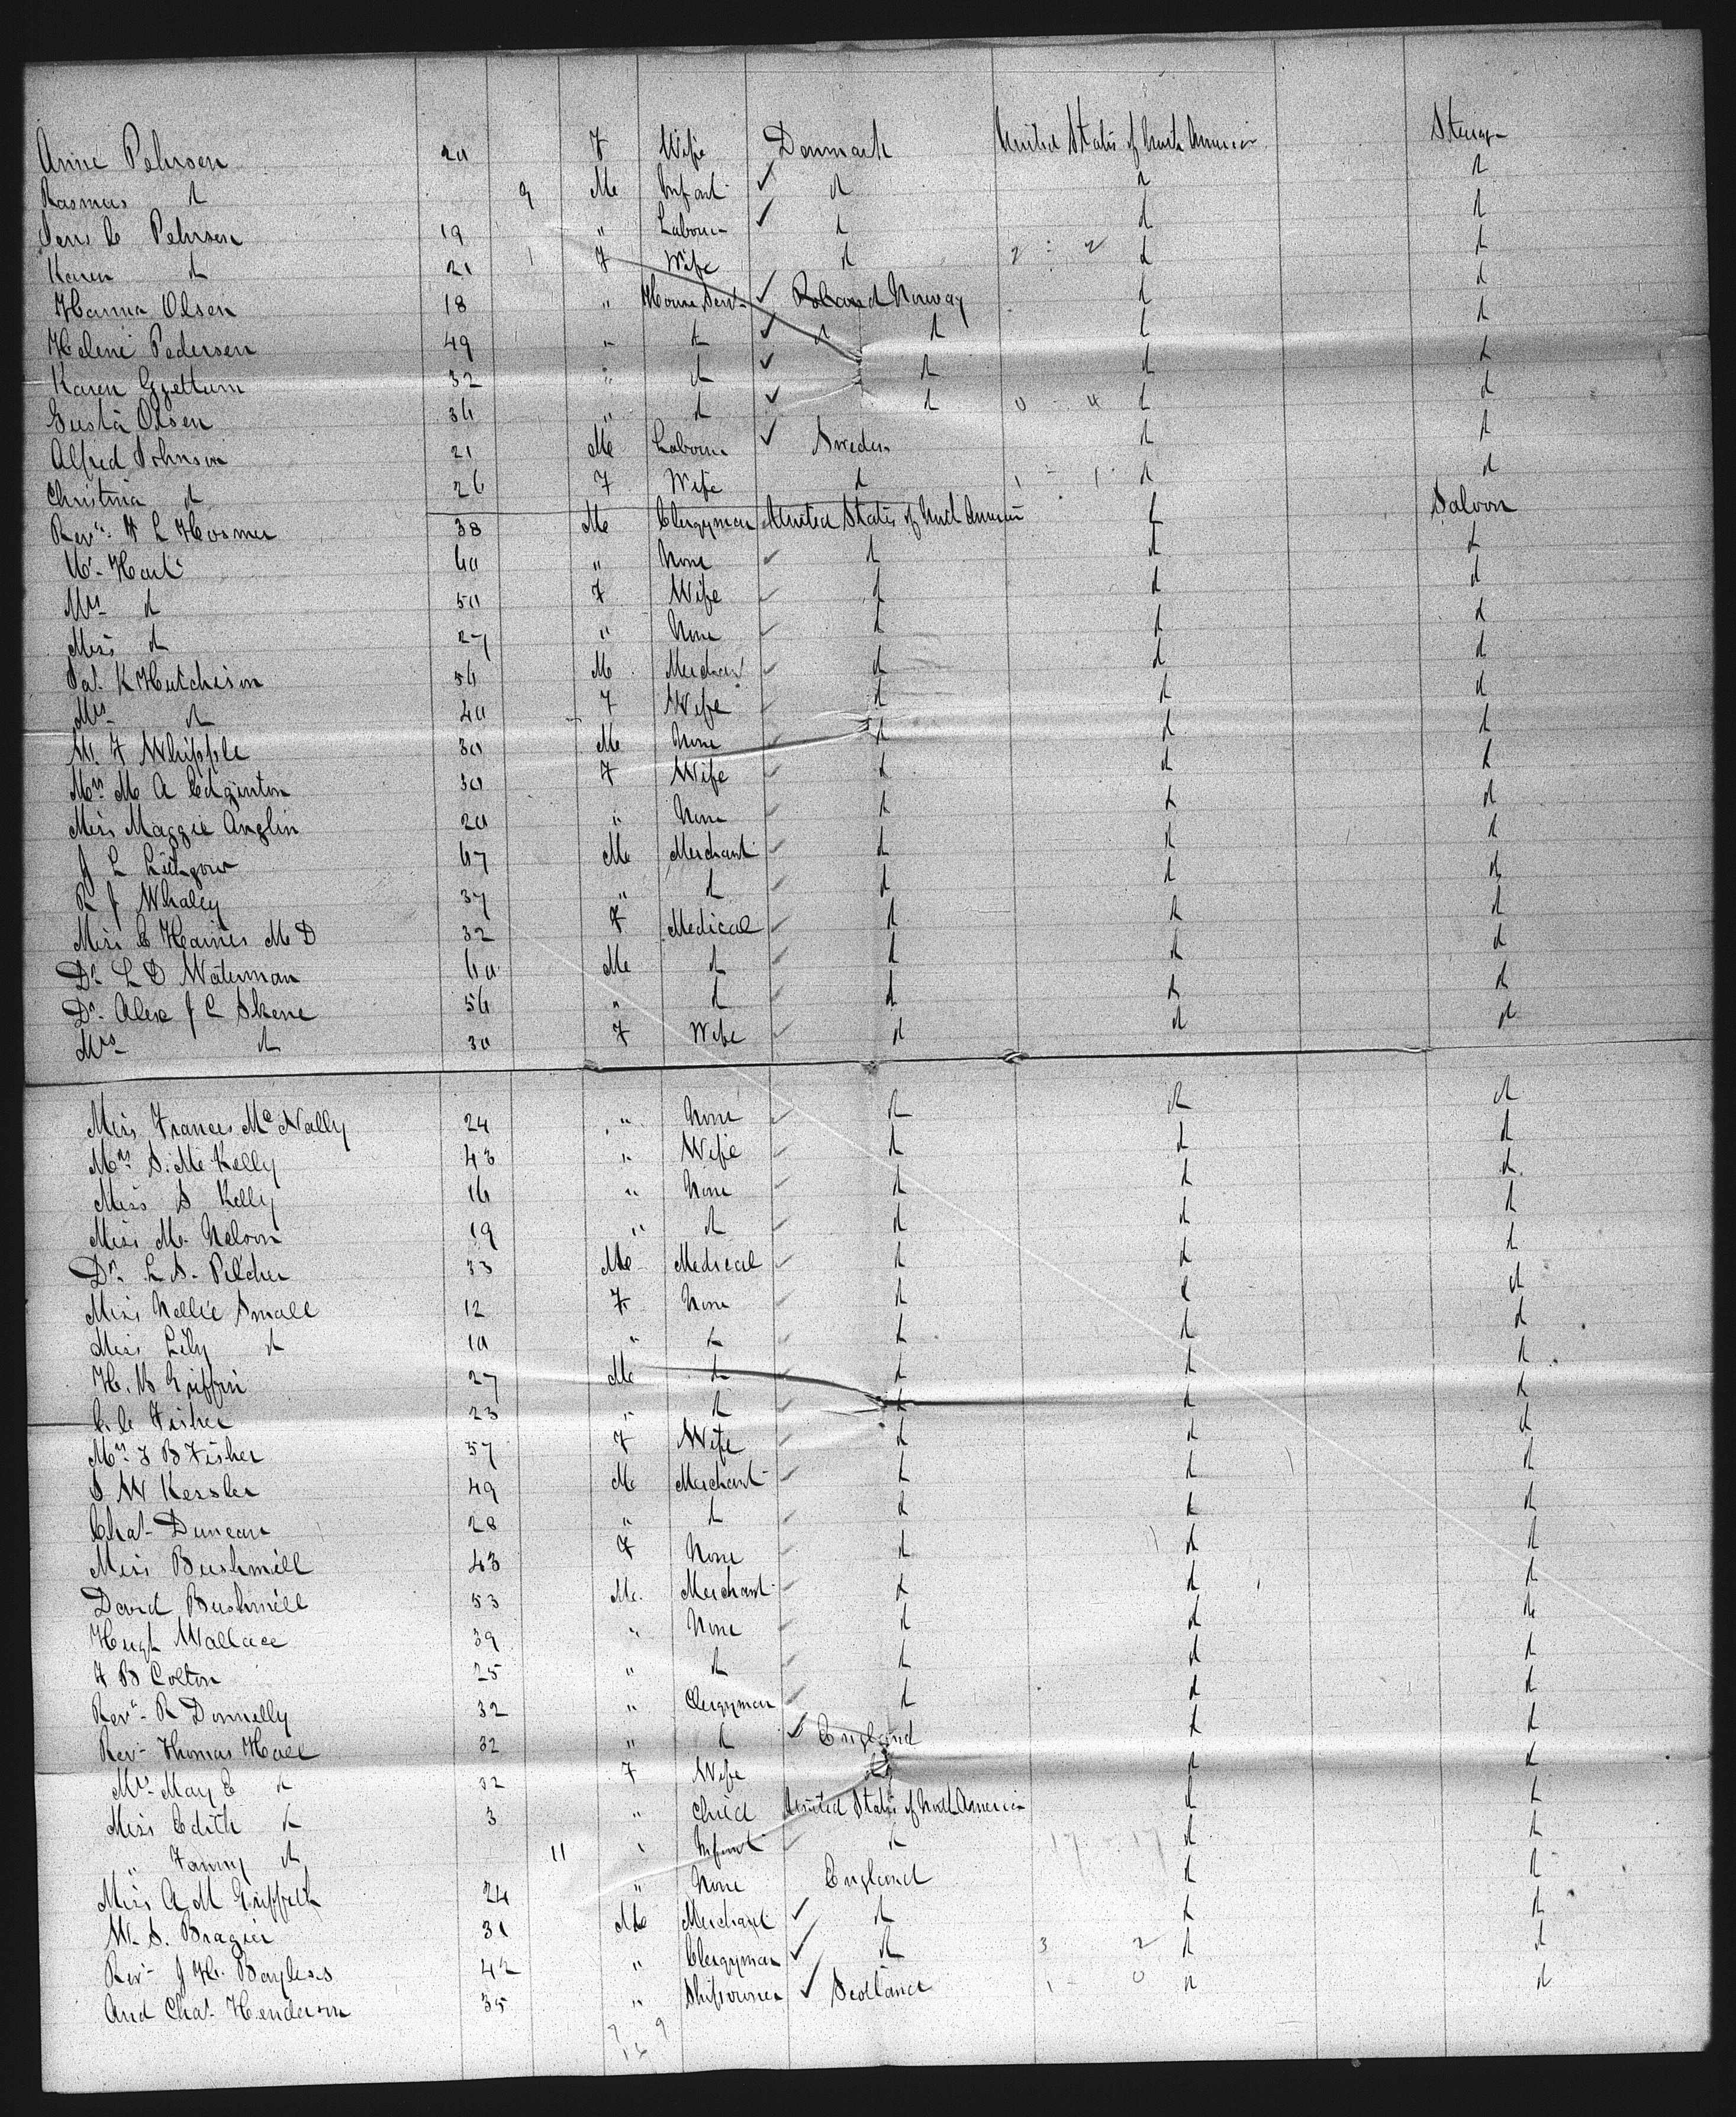 Anine Pehrsen 20 F Wife Denmark United States of North America Steerage
Rasmus d 9 Me Infant ✓ d d d
Jens C Pehrsen 19 " Labourer ✓ d d d
Karen d 21 F Wife d 2 : 2 d d
Hanna Olsen 18 " House Servt ✓ Norway d d
Helene Pedersen 49 " d ✓ d d d d
Karen 32 " d ✓ d d d
Gusta Olsen 36 " d ✓ d 4 d d
Alfred Johnson 21 Me Labourer ✓ Sweden d d
Christina d 26 F Wife d 1 - 1 d d
Revd. L Hosmer 38 Me Clergyman United States of North America d Saloon
Mr. Hart 60 " None ✓ d d d
Mrs d 50 F Wife ✓ d d d
Miss d 27 " None ✓ d d d
Jas. K Hutchison 56 M Merchant ✓ d d d
Mrs d 40 F Wife ✓ d d d
W. F Whipple 30 Me None ✓ d d d
Mrs M A Edginton 30 F Wife ✓ d d d
Miss Maggie Anglin 20 " None ✓ d d d
J L Lithgow 67 Me Merchant ✓ d d d
R J Whaley 37 " d d d d
Miss C Haines M D 32 F Medical ✓ d d d
Dr. L D Waterman 60 Me d ✓ d d d
Dr. Alex J C Skene 56 " d ✓ d d d
Mrs d 30 F Wife ✓ d d d
Miss Frances McNally 24 " None ✓ d d d
Mrs S. Mc Kelly 43 " Wife ✓ d d d
Miss S Kelly 16 " None d d d
Miss M. Nelson 19 " d ✓ d d d
Dr. L S. Pilcher 33 Me Medical ✓ d d d
Miss Nellie Small 12 F None d d d
Miss Lily d 10 " d ✓ d d d
H. B Griffin 27 Me d ✓ d d d
C. C Fisher 23 " d ✓ d d d
Mrs J B Fisher 57 F Wife ✓ d d d
S W Kessler 49 Me Merchant ✓ d d d
Chas. Duncan 28 " d d d d
Miss Bushmill 43 F None ✓ d d d
David Bushmill 53 Me. Merchant ✓ d d d
Hugh Wallace 39 " None ✓ d d d
F B Colton 25 " d ✓ d d d
Revd. R Donnelly 32 " Clergyman ✓ d d d
Revd. Thomas Hall 32 " d ✓ England d d
Mrs. May E d 32 F Wife d d d
Miss Edith d 3 " Child United States of North America d d
" Fanny d 11 " Infant ✓ d 17 - 17 d d
Miss A M Griffith 24 " None England d d
W. S. Bragier 31 Me Merchant ✓ d d d
Revd. J H. Bayless 42 " Clergyman ✓ d 3 2 d d
And Chas. Henderson 35 " Shipowner ✓ Scotland 1 - 0 d d
9 9
16